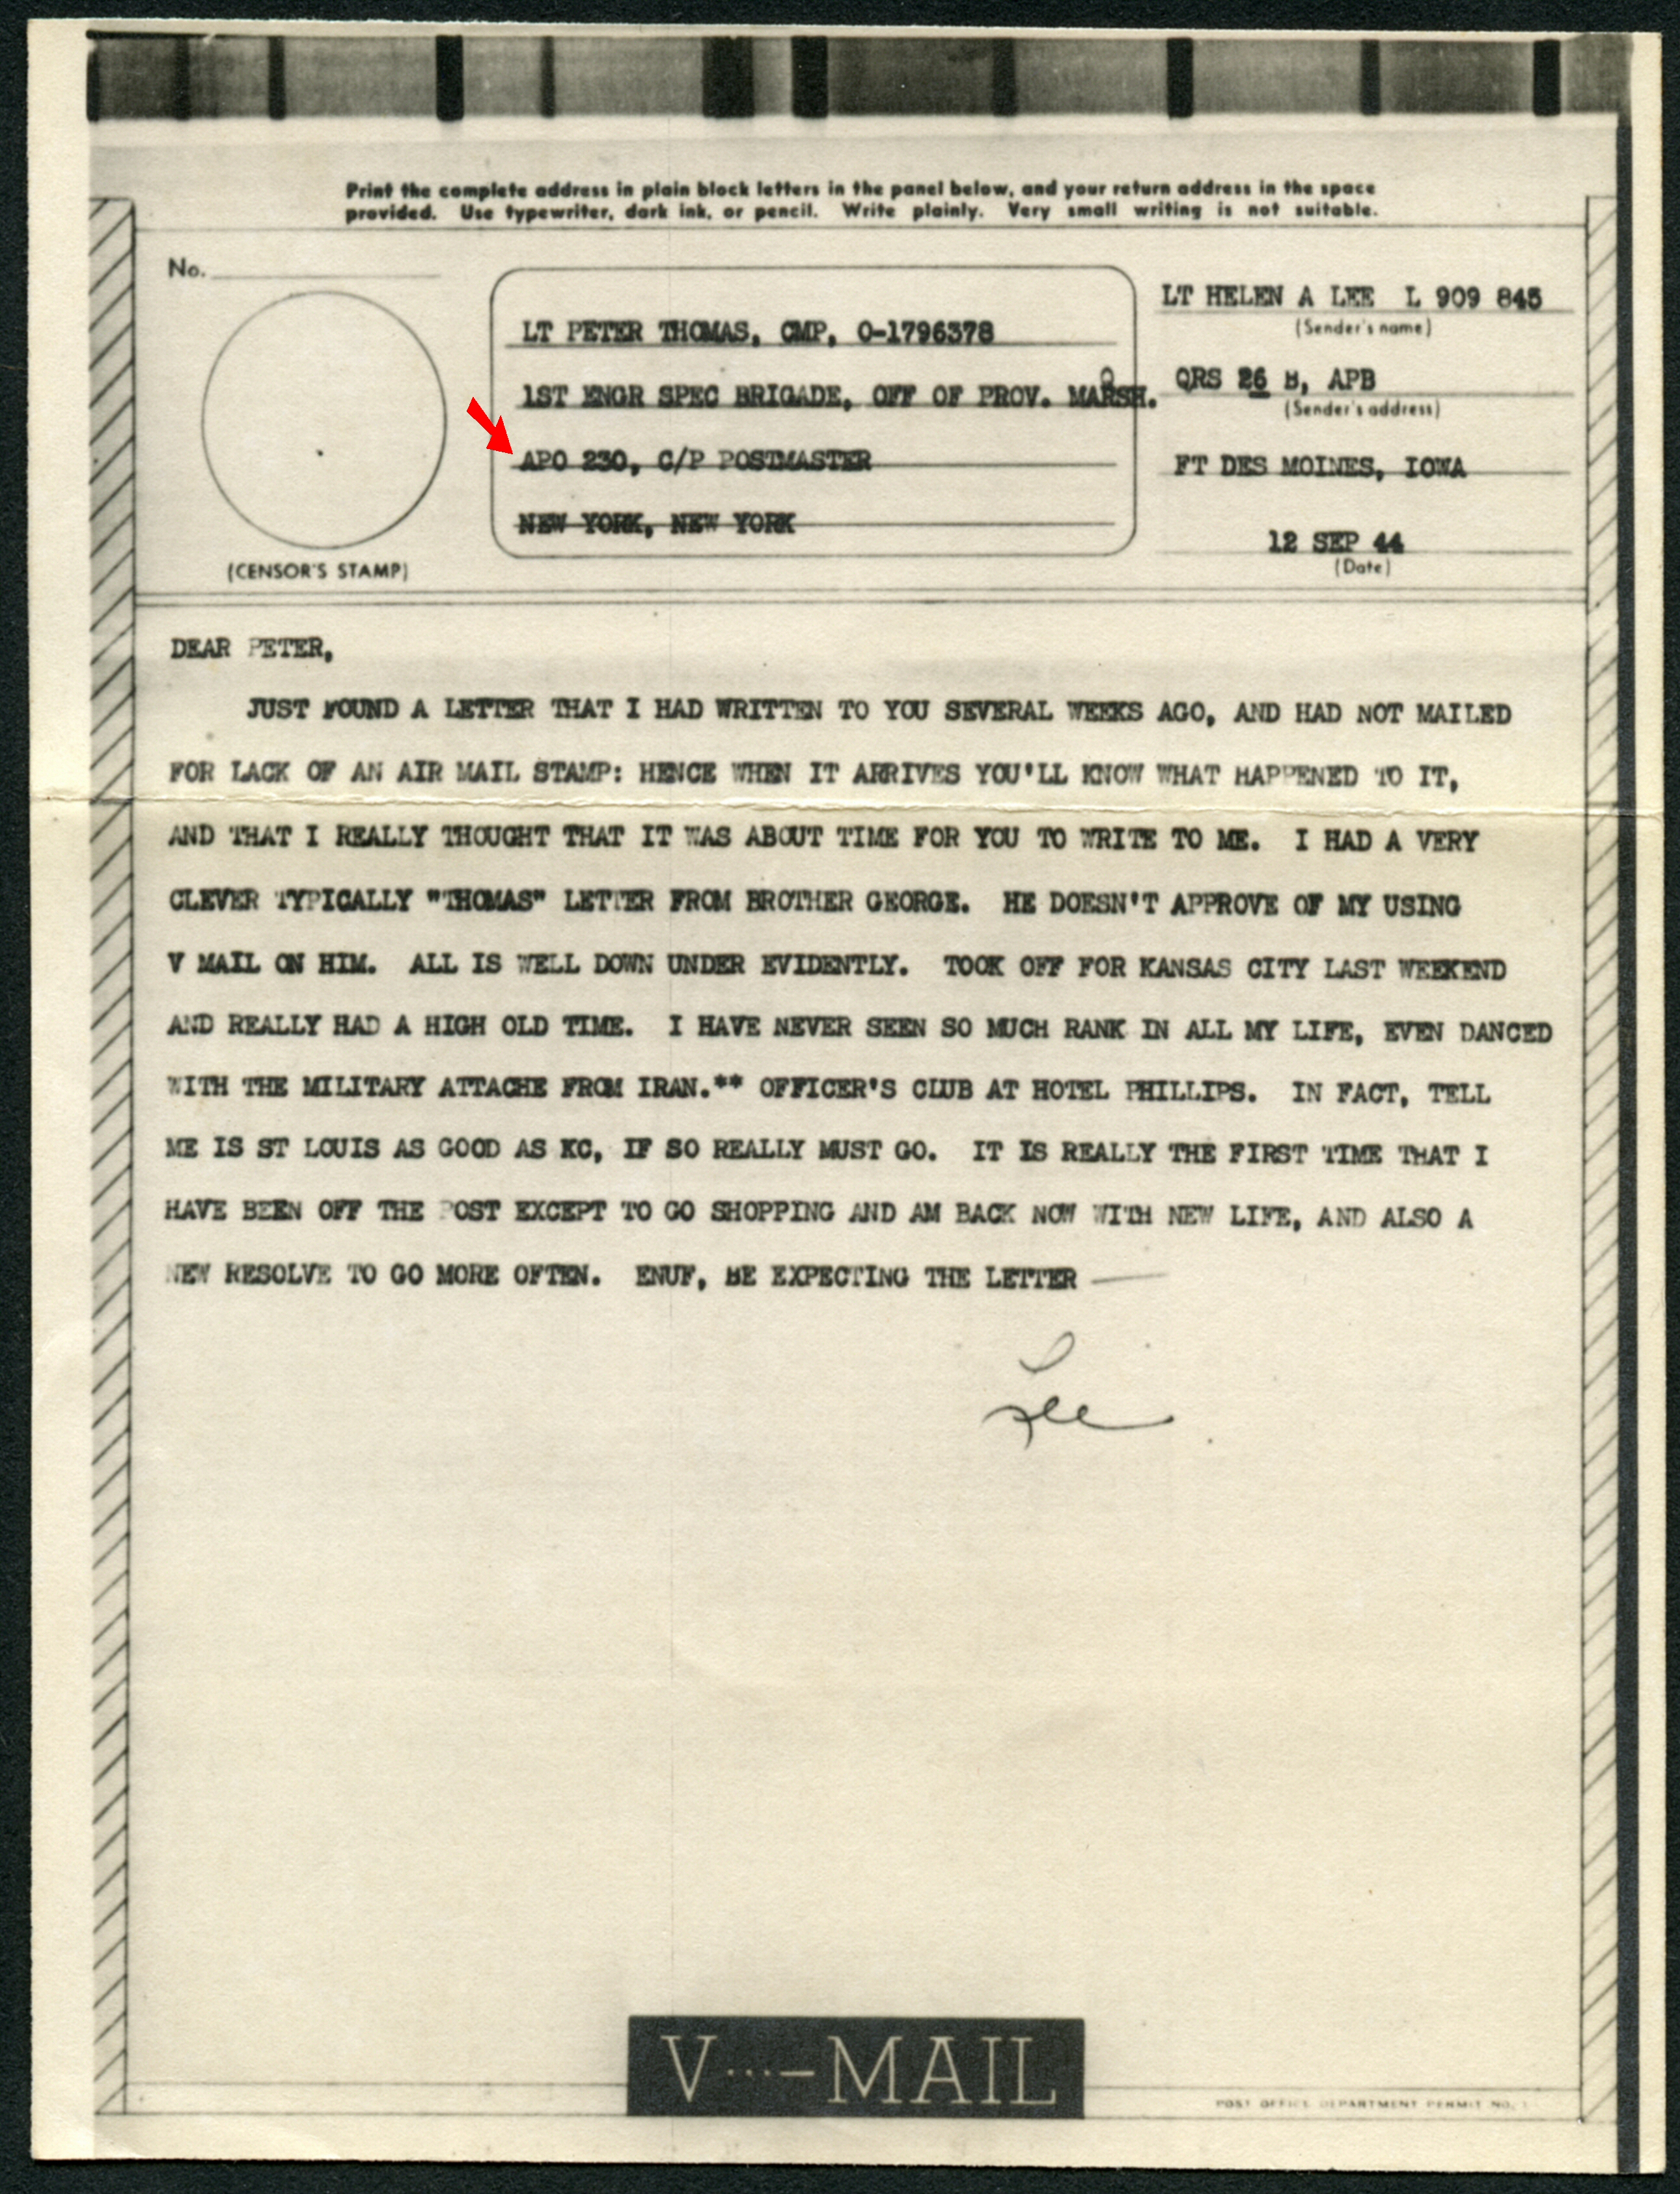 Print the complete address in plain block letters in the panel below, and your return address in the space
provided. Use typewriter, dark ink, or pencil. Write plainly. Very small writing is not suitable.
No.
(CENSOR'S STAMP)
LT PETER THOMAS, CMP, O-1796378
1ST ENGR SPEC BRIGADE, OFF OF PROV. MARSH.
APO 230, C/P POSTMASTER
NEW YORK, NEW YORK
LT HELEN A LEE L 909 845
(Sender's name)
QRS 26 B, APB
(Sender's address)
FT DES MOINES, IOWA
12 SEP 44
(Date)
DEAR PETER,
JUST FOUND A LETTER THAT I HAD WRITTEN TO YOU SEVERAL WEEKS AGO, AND HAD NOT MAILED
FOR LACK OF AN AIR MAIL STAMP: HENCE WHEN IT ARRIVES YOU'LL KNOW WHAT HAPPENED TO IT,
AND THAT I REALLY THOUGHT THAT IT WAS ABOUT TIME FOR YOU TO WRITE TO ME. I HAD A VERY
CLEVER TYPICALLY "THOMAS" LETTER FROM BROTHER GEORGE. HE DOESN'T APPROVE OF MY USING
V MAIL ON HIM. ALL IS WELL DOWN UNDER EVIDENTLY. TOOK OFF FOR KANSAS CITY LAST WEEKEND
AND REALLY HAD A HIGH OLD TIME. I HAVE NEVER SEEN SO MUCH RANK IN ALL MY LIFE, EVEN DANCED
WITH THE MILITARY ATTACHE FROM IRAN.** OFFICER'S CLUB AT HOTEL PHILLIPS. IN FACT, TELL
ME IS ST LOUIS AS GOOD AS KC, IF SO REALLY MUST GO. IT IS REALLY THE FIRST TIME THAT I
HAVE BEEN OFF THE POST EXCEPT TO GO SHOPPING AND AM BACK NOW WITH NEW LIFE, AND ALSO A
NEW RESOLVE TO GO MORE OFTEN. ENUF, BE EXPECTING THE LETTER —
Lee
V···—MAIL
POST OFFICE DEPARTMENT PERMIT NO.